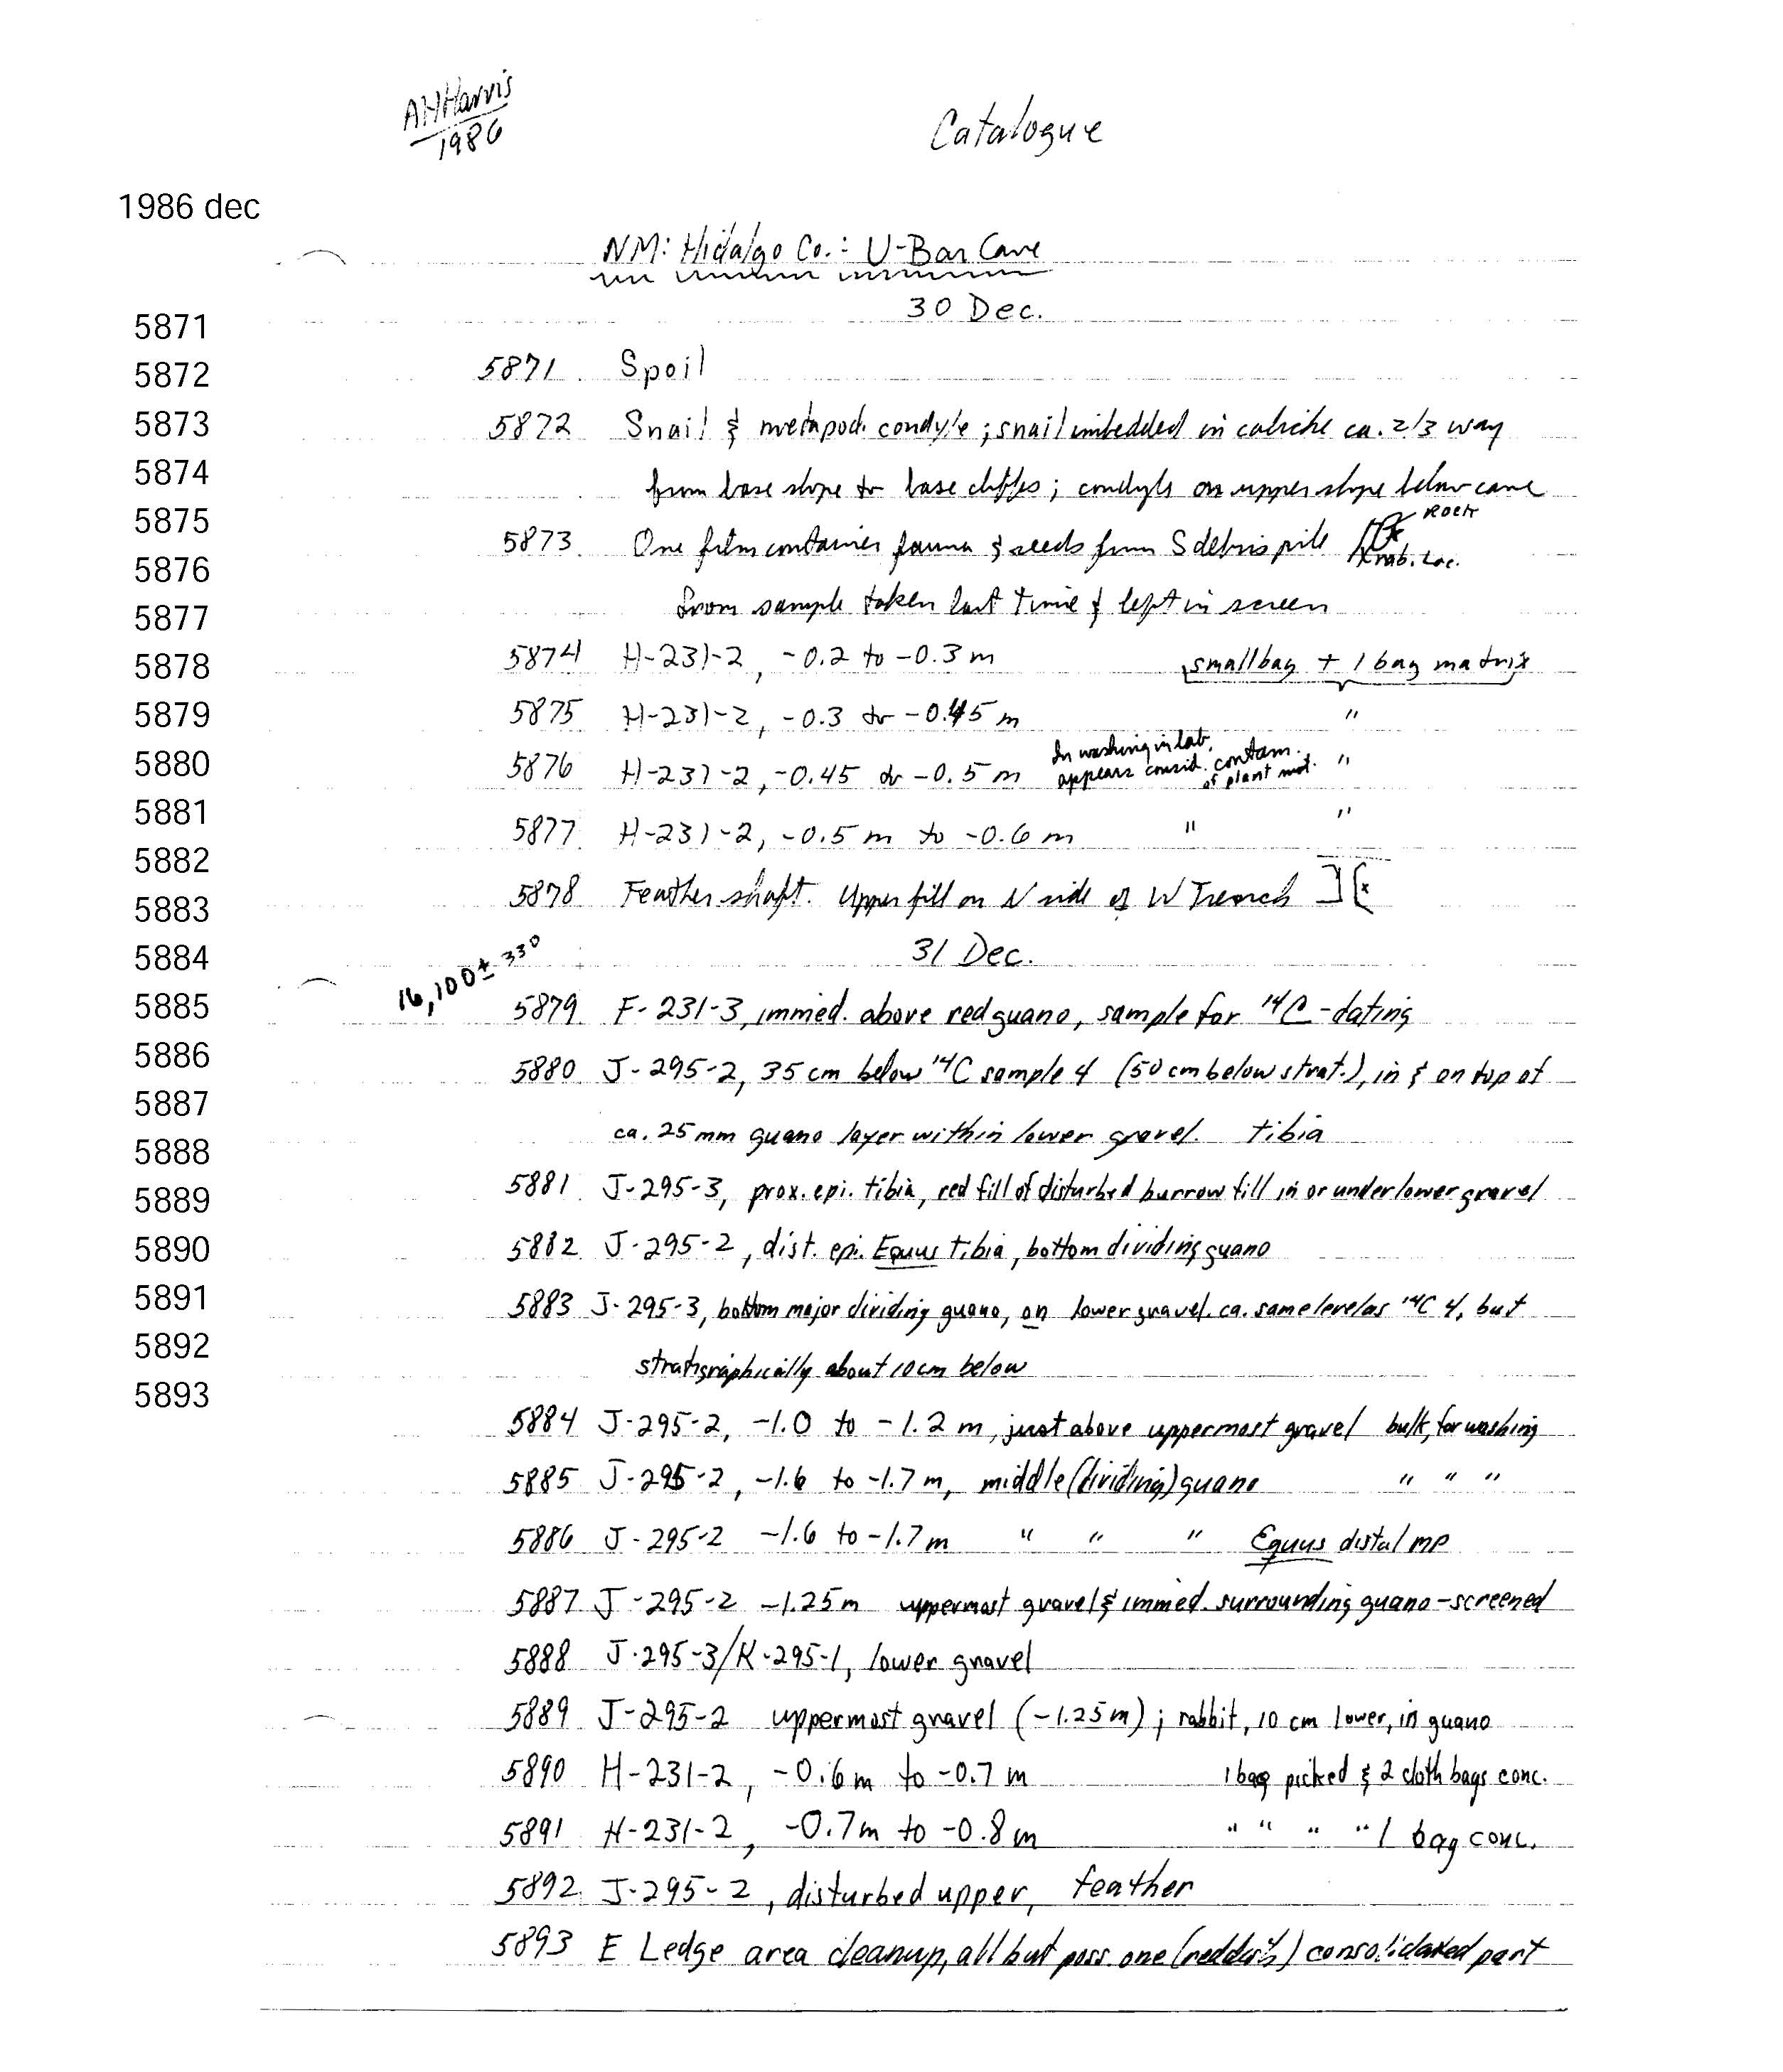 AHHarris
1986
Catalogue
1986 dec
NM: Hidalgo Co.: U-Bar Cave
30 Dec.
5871
5872
5873
5874
5875
5876
5877
5878
5879
5880
5881
5882
5883
5884
5885
5886
5887
5888
5889
5890
5891
5892
5893
5871 Spoil
5872 Snail & metapod. condyle; snail imbedded in caliche ca. 2/3 way
from base slope to base cliffs; condyle on upper slope below cave
5873 One film container fauna & seeds from S debris pile Rock
rab. Loc.
from sample taken last time & left in screen
5874 H-231-2, -0.2 to -0.3 m small bag + 1 bag matrix
5875 H-231-2, -0.3 to -0.45 m "
5876 H-231-2, -0.45 to -0.5 m In washing in lab, appears consid. contam. of plant mat. "
5877 H-231-2, -0.5 m to -0.6 m " "
5878 Feather shaft. Upper fill on N side of W Trench ] [x
31 Dec.
16,100 ± 330
5879 F-231-3, immed. above red guano, sample for 14C-dating
5880 J-295-2, 35 cm below 14C sample 4 (50 cm below strat.), in & on top of
ca. 25 mm guano layer within lower gravel. tibia
5881 J-295-3, prox. epi. tibia, red fill of disturbed burrow fill in or under lower gravel
5882 J-295-2, dist. epi. Equus tibia, bottom dividing guano
5883 J-295-3, bottom major dividing guano, on lower gravel. ca. same level as 14C 4, but
stratigraphically about 10 cm below
5884 J-295-2, -1.0 to -1.2 m, just above uppermost gravel bulk, for washing
5885 J-295-2, -1.6 to -1.7 m, middle (dividing) guano " " "
5886 J-295-2 -1.6 to -1.7 m " " " Equus distal mp
5887 J-295-2 -1.25 m uppermost gravel & immed. surrounding guano-screened
5888 J-295-3/K-295-1, lower gravel
5889 J-295-2 uppermost gravel (-1.25 m); rabbit, 10 cm lower, in guano
5890 H-231-2, -0.6 m to -0.7 m 1 bag picked & 2 cloth bags conc.
5891 H-231-2, -0.7 m to -0.8 m " " " " 1 bag conc.
5892 J-295-2, disturbed upper, feather
5893 E Ledge area cleanup, all but poss. one (reddish) consolidated part